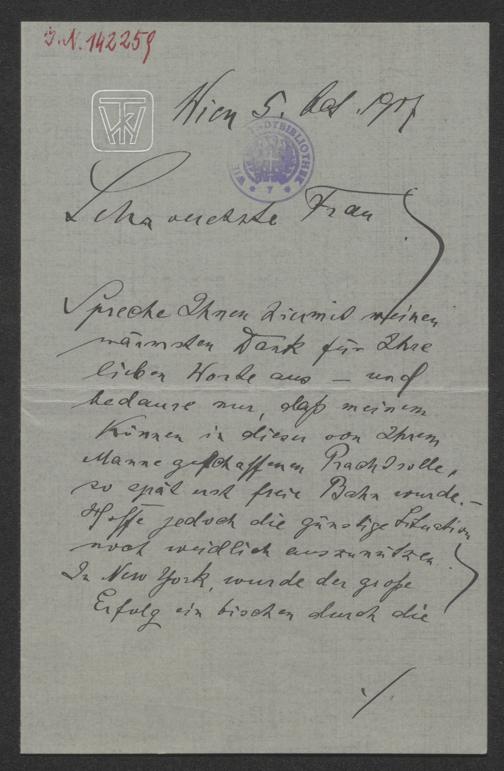 I.N. 142259
Wien 5. Okt. 1907
WIENER STADTBIBLIOTHEK
7
Sehr verehrte Frau
Spreche Ihnen hiermit meinen
wärmsten Dank für Ihre
lieben Worte aus — und
bedaure nur, daß meinem
Können in dieser von Ihrem
Manne geschaffenen Prachtrolle,
so spät erst freie Bahn wurde. —
Hoffe jedoch die günstige Situation
noch weidlich auszunützen.
In New York, wurde der große
Erfolg ein bischen durch die
./.